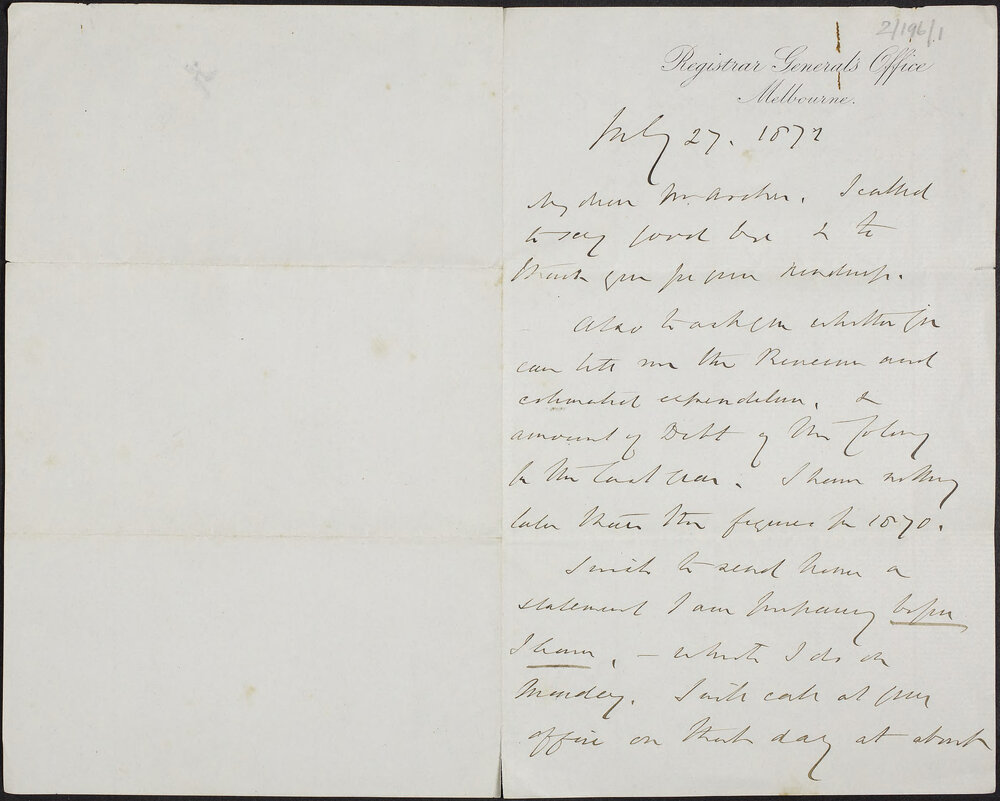 2/196/1
Registrar General's Office
Melbourne.
July 27. 1872
My dear Mr. Archer. I called
to say good bye & to
thank you for your kindness.
Also to ask you whether you
can tell me the Revenue and
estimated expenditure, &
amount of Debt of the Colony
for the last year. I have nothing
later than the figures for 1870.
I wish to send home a
statement I am preparing before
I leave, – which I do on
Monday. I will call at your
office on that day at about